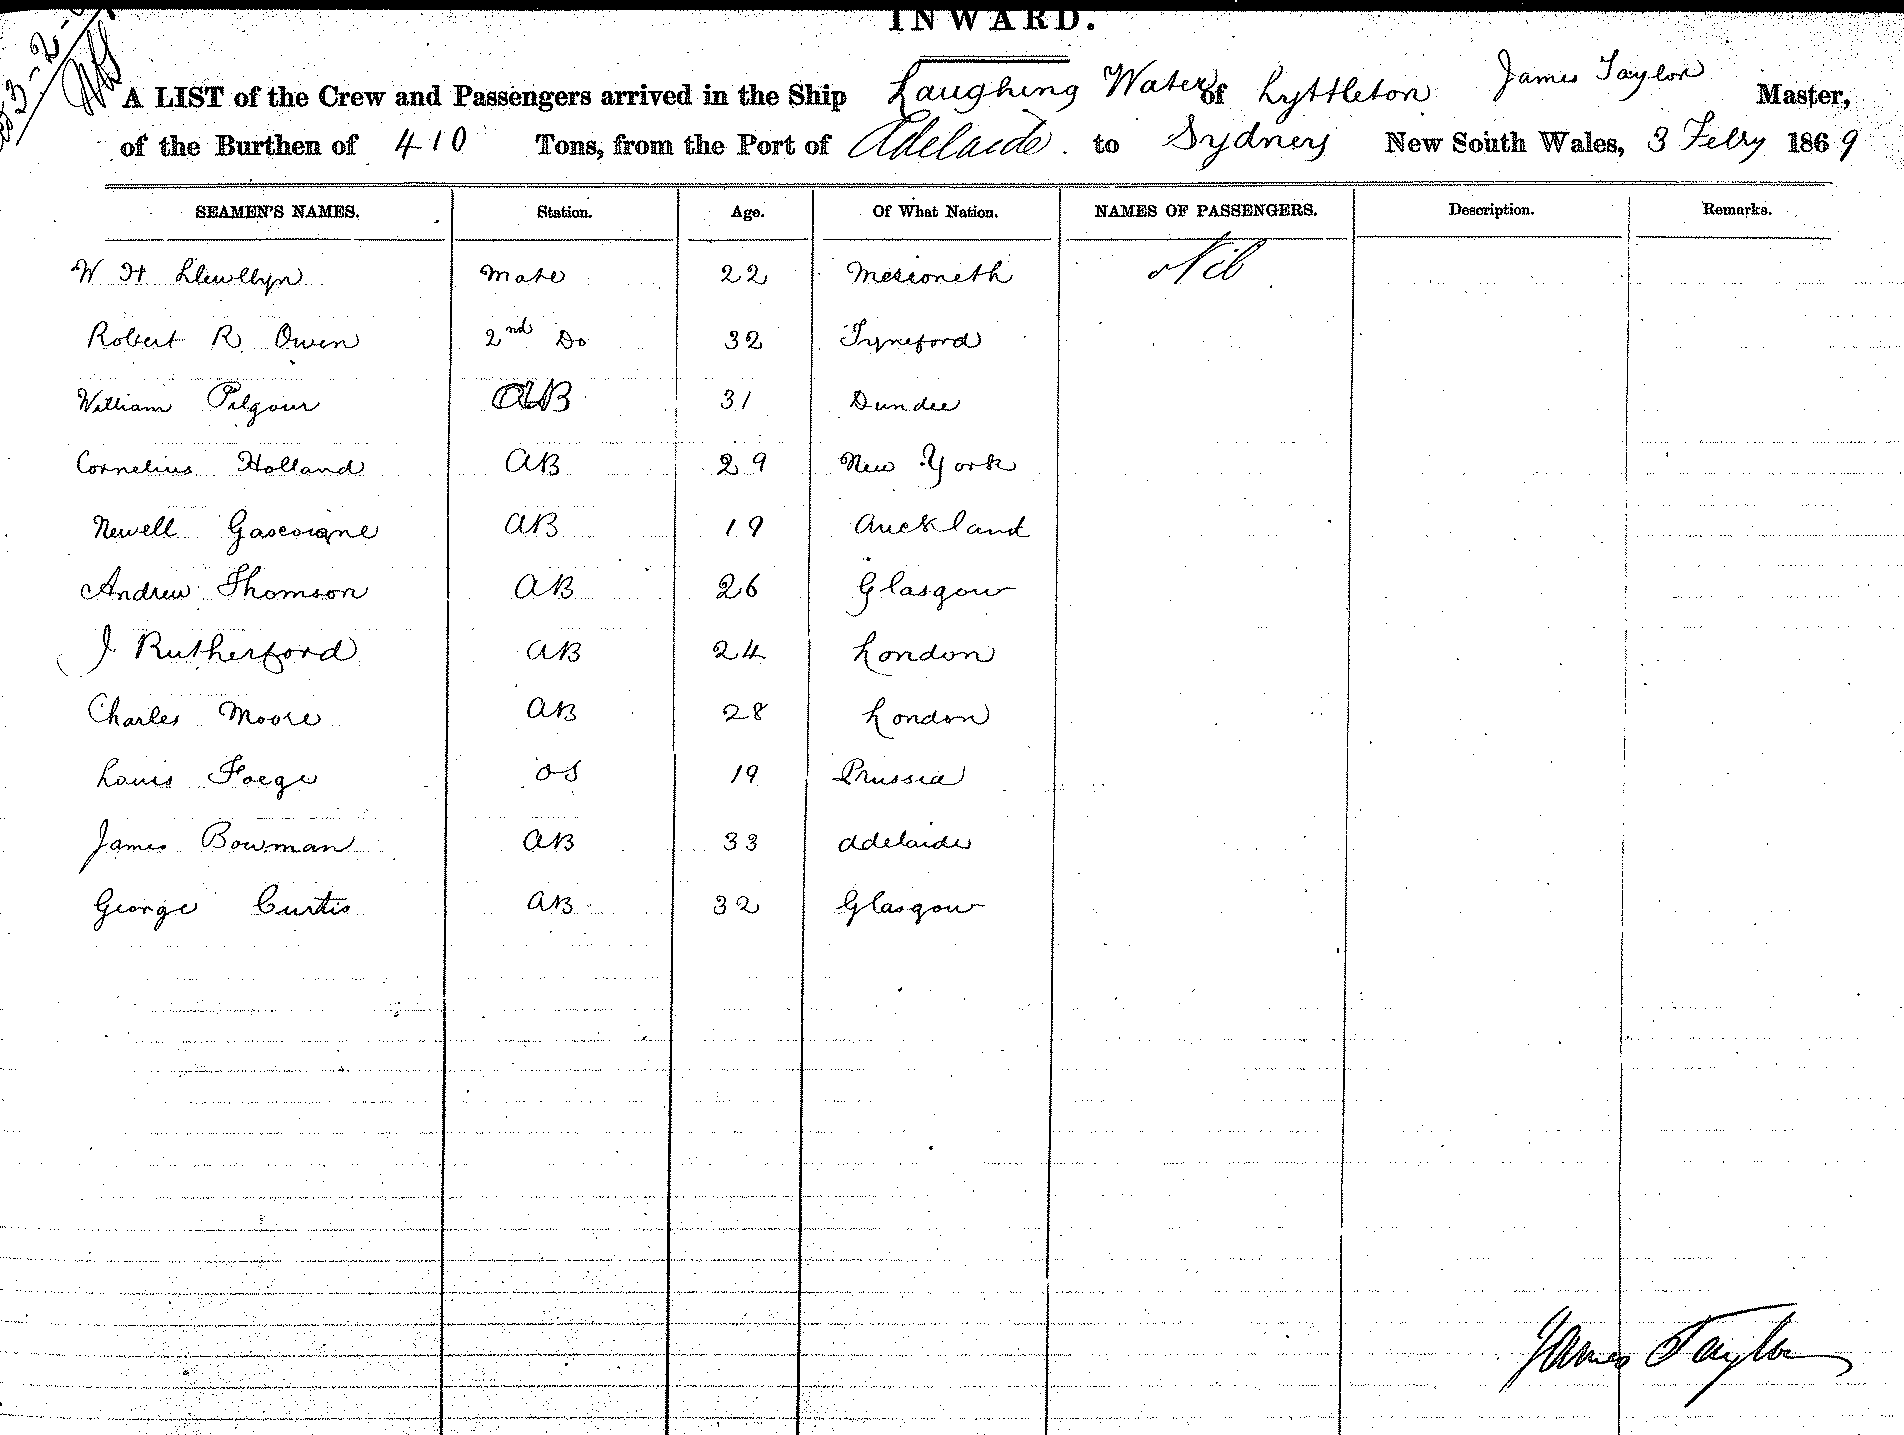 INWARD.
A LIST of the Crew and Passengers arrived in the Ship Laughing Water of Lyttleton James Taylor Master,
of the Burthen of 410 Tons, from the Port of Adelaide to Sydney New South Wales, 3 Feby 1869
SEAMEN'S NAMES. Station. Age. Of What Nation. NAMES OF PASSENGERS. Description. Remarks.
W H Llewllyn Mate 22 Merioneth Nil
Robert R Owen 2nd Do 32 Tyneford
William Pilgour AB 31 Dundee
Cornelius Holland AB 29 New York
Newell Gascoigne AB 19 Auckland
Andrew Thomson AB 26 Glasgow
J Rutherford AB 24 London
Charles Moore AB 28 London
Louis Foege OS 19 Prussia
James Bowman AB 33 Adelaide
George Curtis AB 32 Glasgow
James Taylor